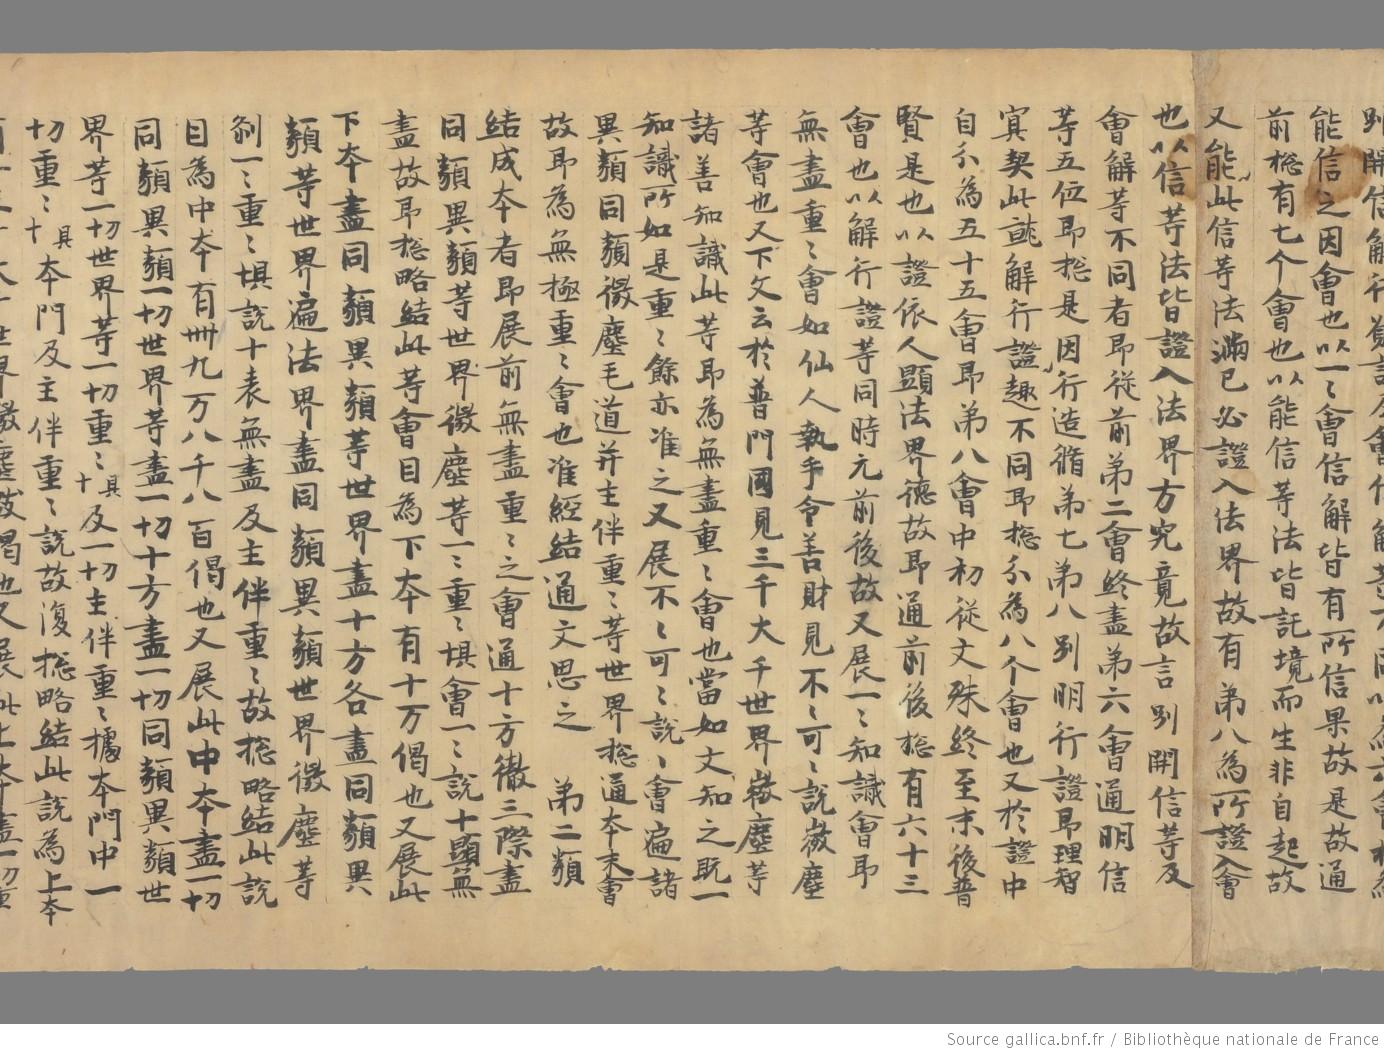 能信之因會也以一〻會信解皆有所信果故是故通
前揔有七个會也以能信等法皆託境而生非自起故
又能此信等法滿已必證入法界故有弟八為所證入會
也以信等法皆證入法界方究竟故言別開信等及
會解等不同者即從前弟二會終盡弟六會通明信
等五位即揔是因行造脩弟七弟八別明行證即理智
冥契此就解行證趣不同即揔分為八个會也又於證中
自分為五十五會即弟八會中初從文殊終至末後普
賢是也以證依人顯法界德故即通前後揔有六十三
會也以解行證等同時无前後故又展一〻知識會即
無盡重〻會如仙人執手令善財見不〻可〻說微塵
等會也又下文云於普門國見三千大千世界微塵等
諸善知識此等即為無盡重〻會也當如文知之既一
知識所如是重〻餘亦准之又展不〻可〻說〻會遍諸
異類同類微塵毛道并主伴重〻等世界揔通本末會
故即為無極重〻會也准經結通文思之 弟二類
結成本者即展前無盡重〻之會通十方徹三際盡
同類異類等世界微塵等一〻重〻惧會一〻說十顯無
盡故即揔略結此等會目為下本有十万偈也又展此
下本盡同類異類等世界盡十方各盡同類異
類等世界遍法界盡同類異類世界微塵等
刹一〻重〻惧說十表無盡及主伴重〻故揔略結此說
目為中本有卌九万八千八百偈也又展此中本盡一切
同類異類一切世界等盡一切十方盡一切同類異類世
界等一切世界等一切重〻具十及一切主伴重〻據本門中一
切重〻具十本門及主伴重〻說故復揔略結此說為上本